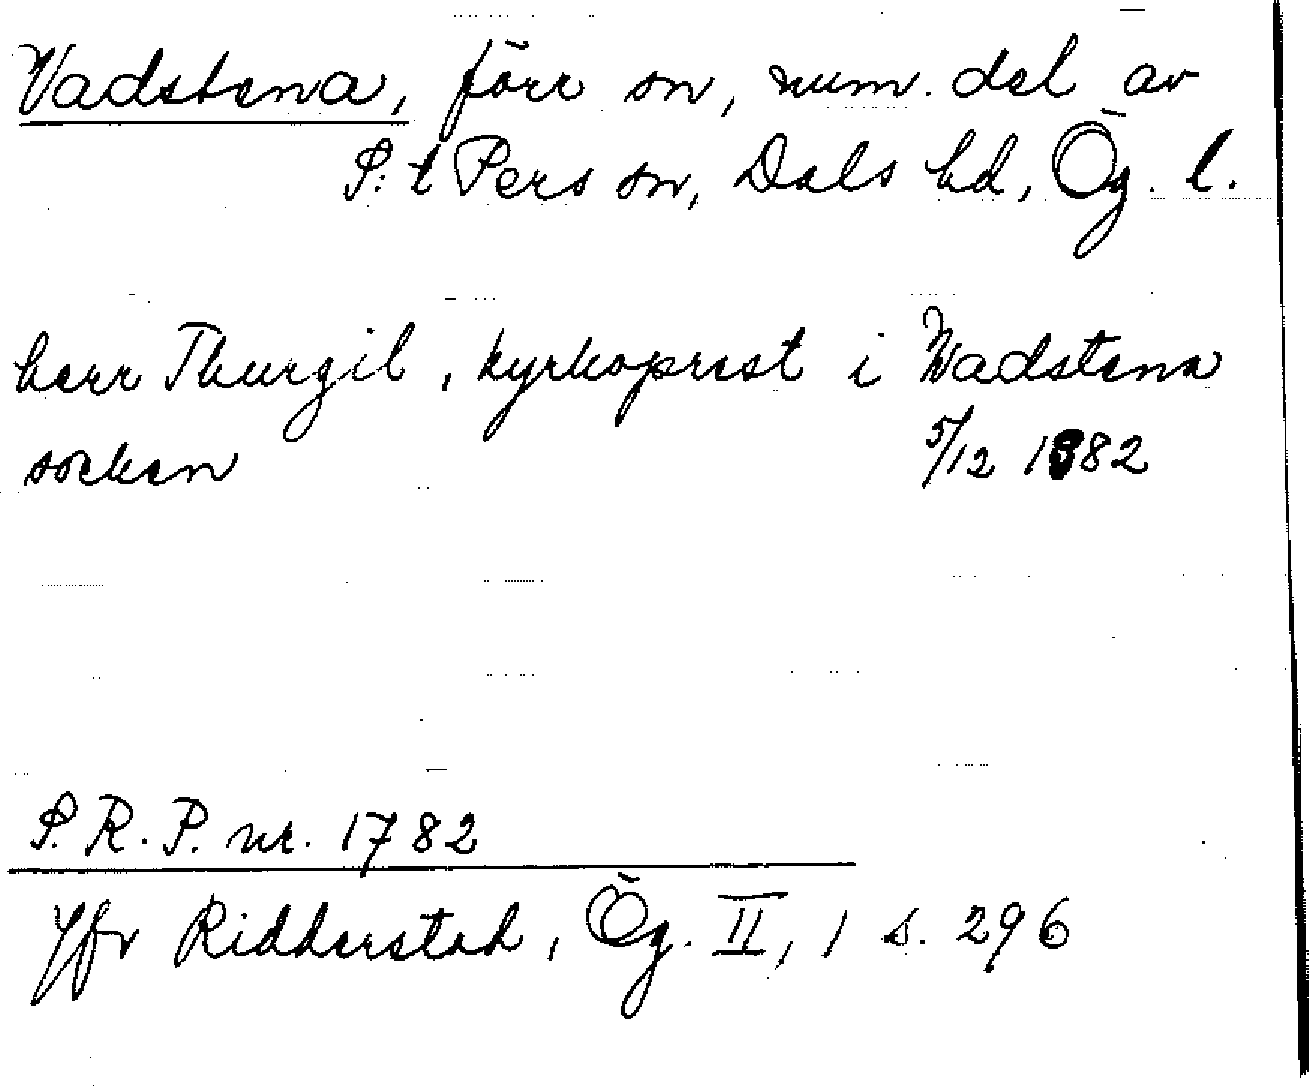 Vadstena, förr sn, num. del av
S:t Pers sn, Dals hd, Ög. l.
herr Thurgil, kyrkoprest i Wadstena
socken 5/12 1382
S.R.P. nr. 1782
Jfr Ridderstad, Ög. II, 1 s. 296